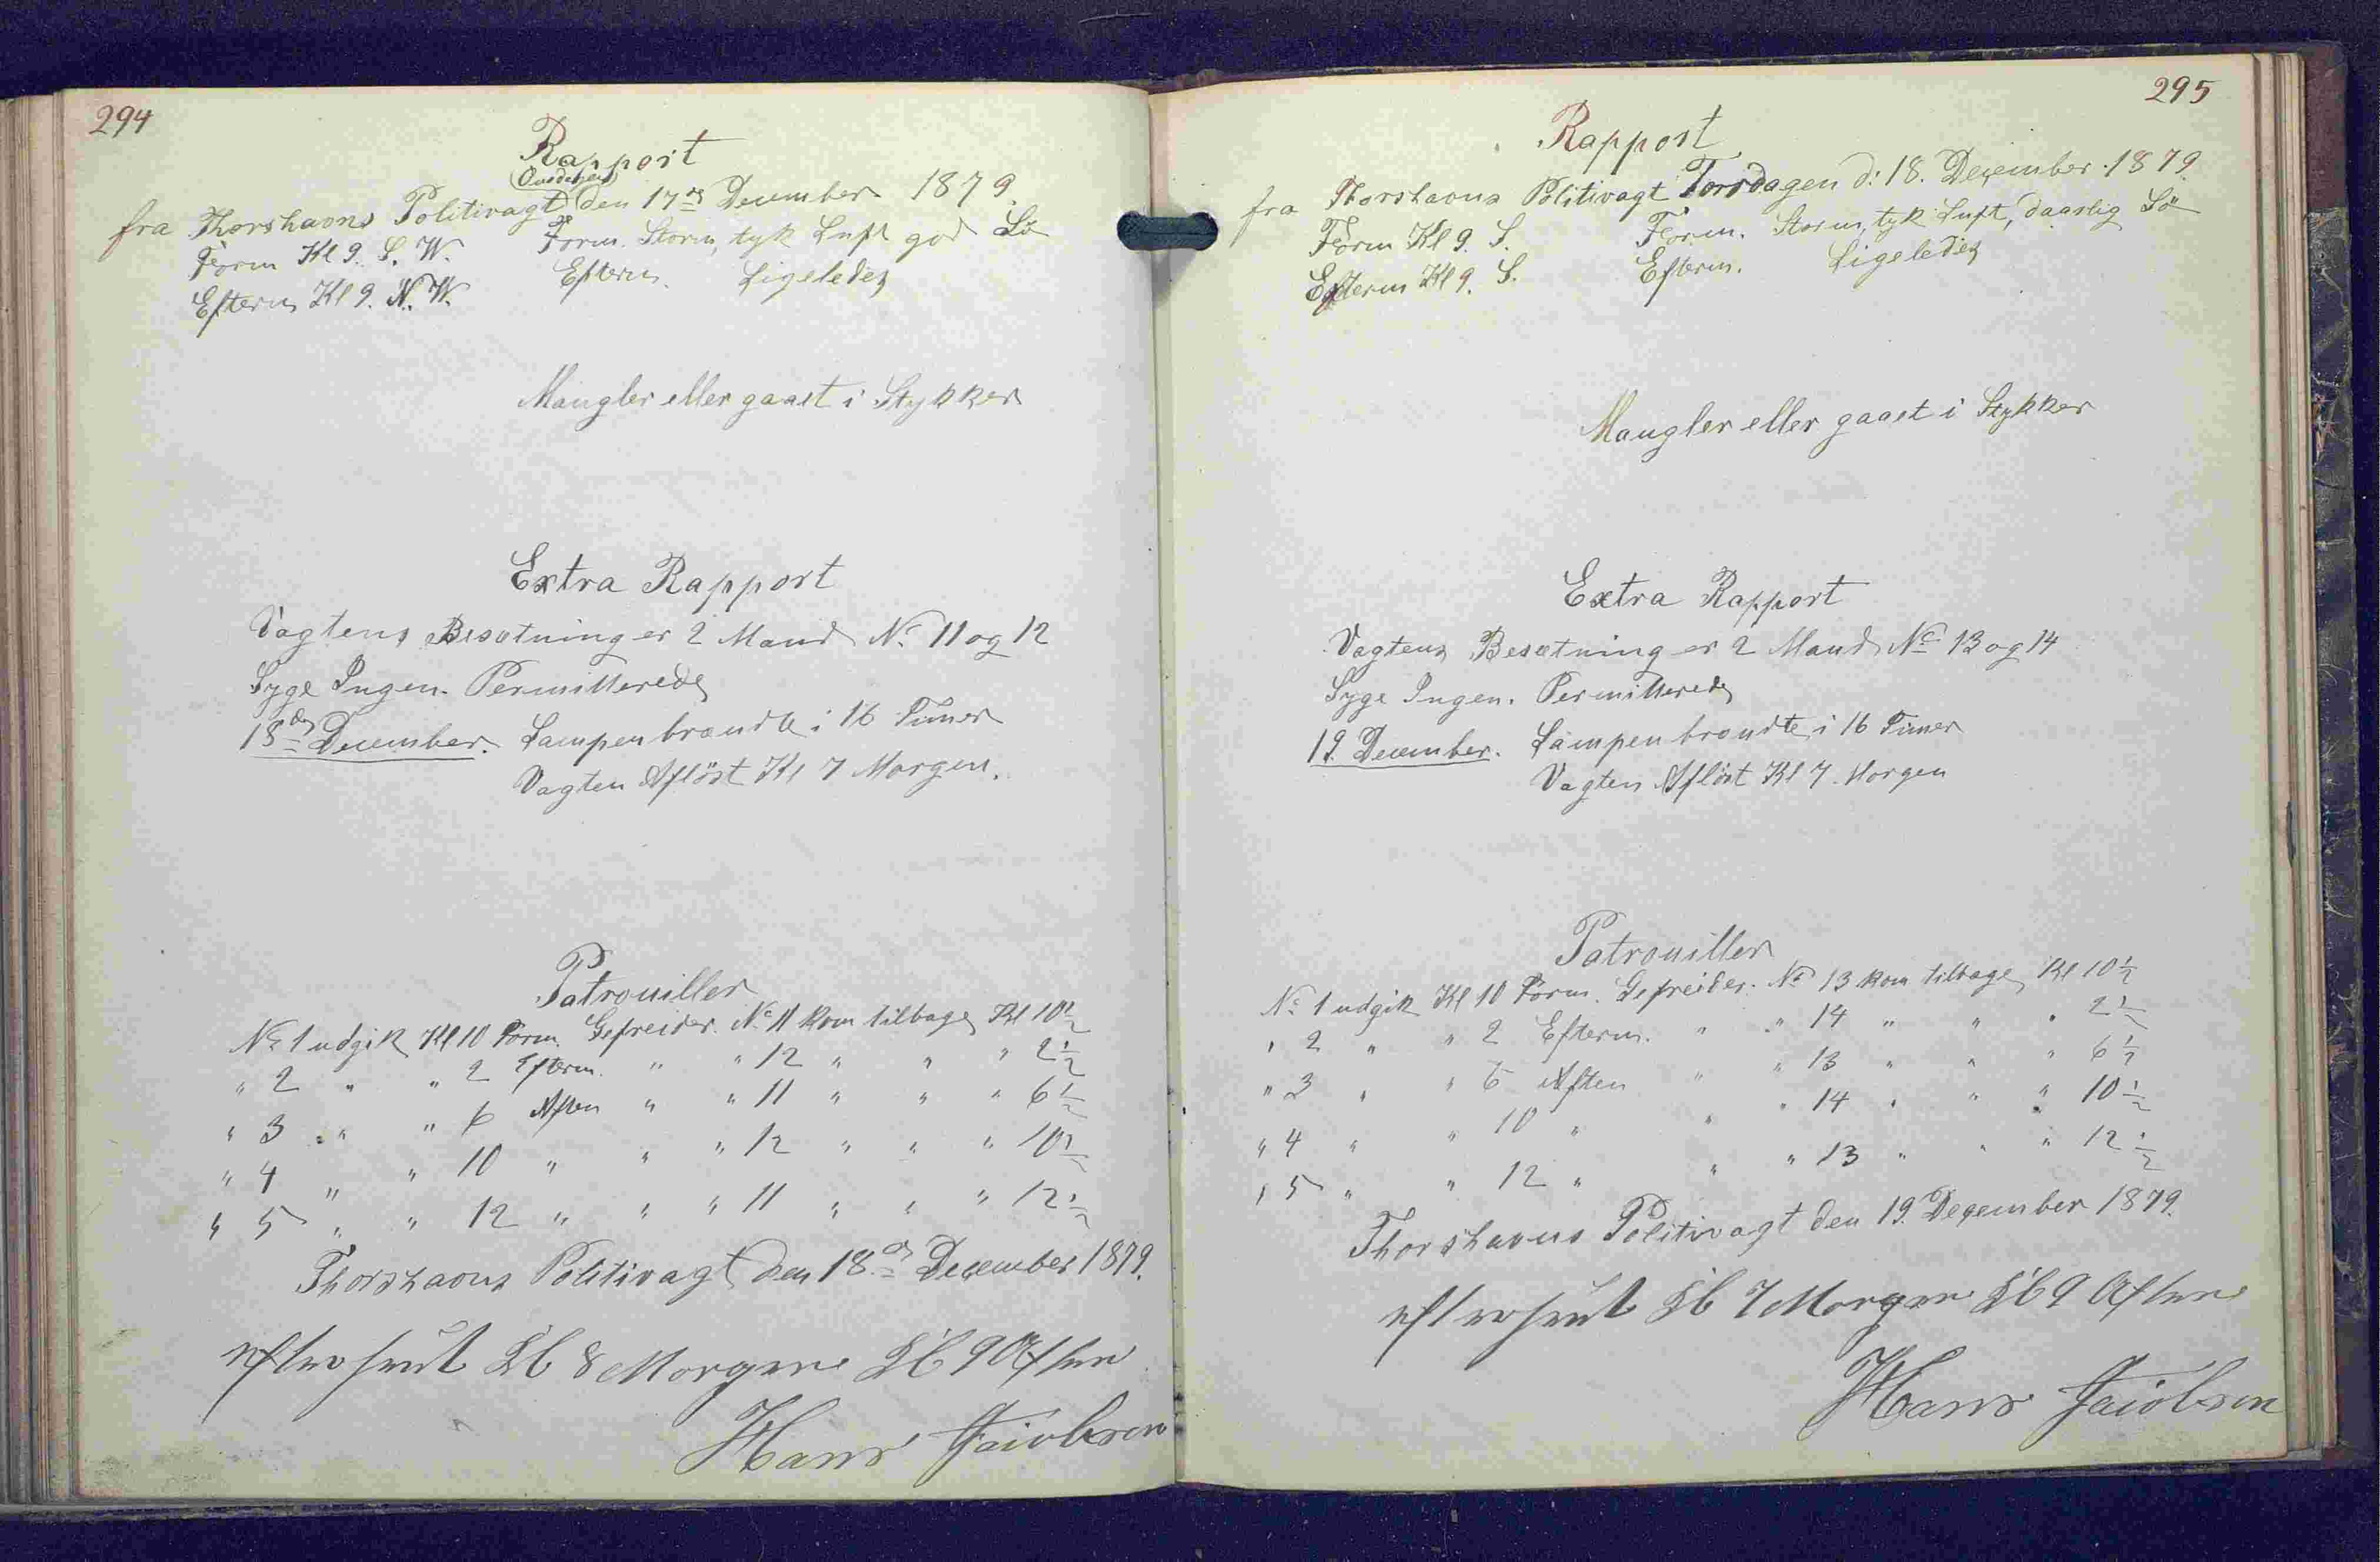 294
Rapport
(Onsdagen)
fra Thorshavns Politivagt den 17de December 1879.
Form Kl 9. S. W. Form. Storm, tyk Luft god Sö
Efterm Kl 9. N. W. Efterm. Ligeledes
Mangler eller gaaet i Stykker
Extra Rapport
Vagtens Besætning er 2 Mand No 11 og 12
Syge Ingen. Permitterede
18de December. Lampen brændte i 16 Timer
Vagten Aflöst Kl 7 Morgen.
Patrouiller
No 1 udgik Kl 10 Form. Gefreider. No 11 kom tilbage Kl 10½
" 2 " " 2 Efterm. " " 12 " " " 2½
" 3 " " 6 Aften " " 11 " " " 6½
" 4 " " 10 " " " 12 " " " 10½
" 5 " " 12 " " " 11 " " " 12½
Thorshavns Politivagt den 18de December 1879.
efterset Kl 8 Morgen Kl 9 Aften
Hans Jacobsen
295
Rapport
fra Thorshavns Politivagt Torsdagen d: 18. December 1879.
Form Kl 9. S. Form. Storm, tyk Luft, daarlig Sö
Efterm Kl 9. S. Efterm. Ligeledes
Mangler eller gaaet i Stykker
Extra Rapport
Vagtens Besætning er 2 Mand No 13 og 14
Syge Ingen. Permitterede
19. December. Lampen brændte i 16 Timer
Vagten Aflöst Kl 7. Morgen
Patrouiller
No 1 udgik Kl 10 Form. Gefreider. No 13 kom tilbage Kl 10½
" 2 " " 2 Efterm. " " 14 " " " 2½
" 3 " " 6 Aften " " 13 " " " 6½
" 4 " " 10 " " " 14 " " " 10½
" 5 " " 12 " " " 13 " " " 12½
Thorshavns Politivagt den 19. December 1879.
efterset Kl 7 Morgen Kl 9 Aften
Hans Jacobsen